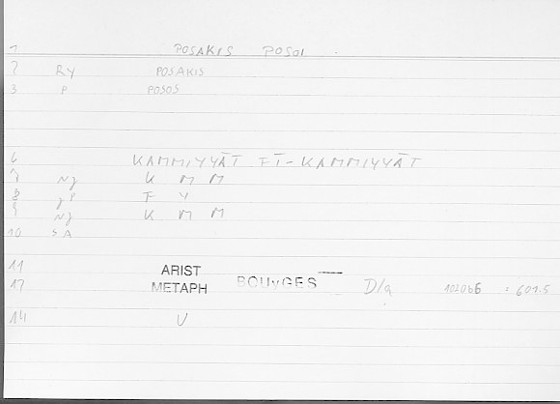 1 POSAKIS POSOI
2 RY POSAKIS
3 P POSOS
6 KAMMIYYĀT FĪ-KAMMIYYĀT
7 Nj K M M
8 jP F Y
9 Nj K M M
10 SA
11 ARIST
12 METAPH BOUyGES D/a 1020b6 = 601.5
14 V